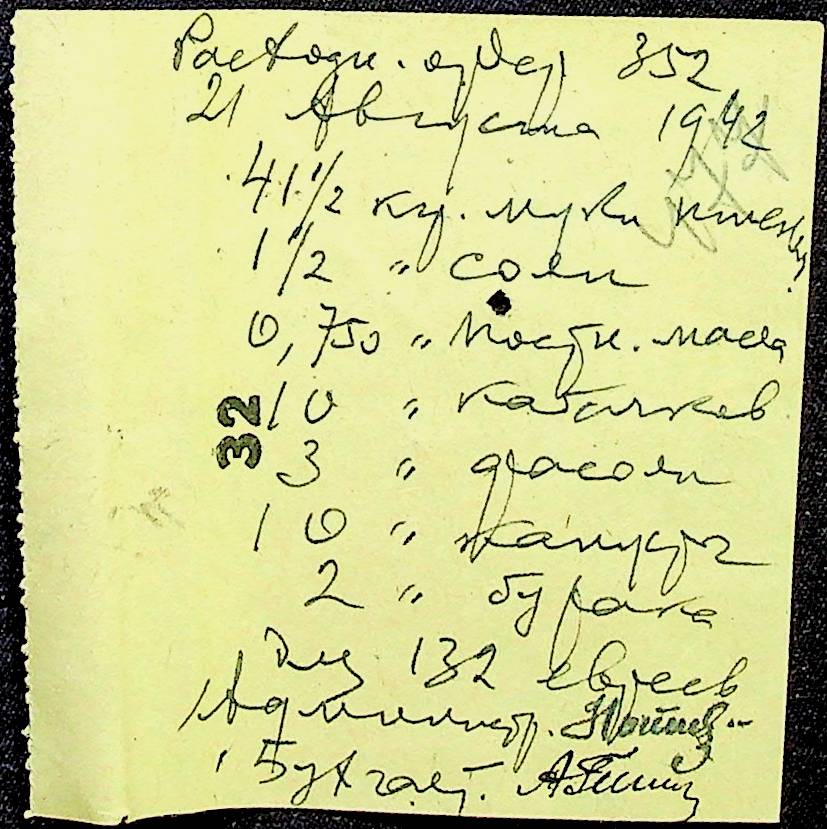 Расходн. ордер 352
21 Августа 1942
41 1/2 кг. муки пшен
1 1/2 " соли
0,750 " Постн. масла
10 " кабачков
3 " фасоли
10 " капусты
2 " бурака
Для 132 евреев
Администр.
Бухгалт.
32